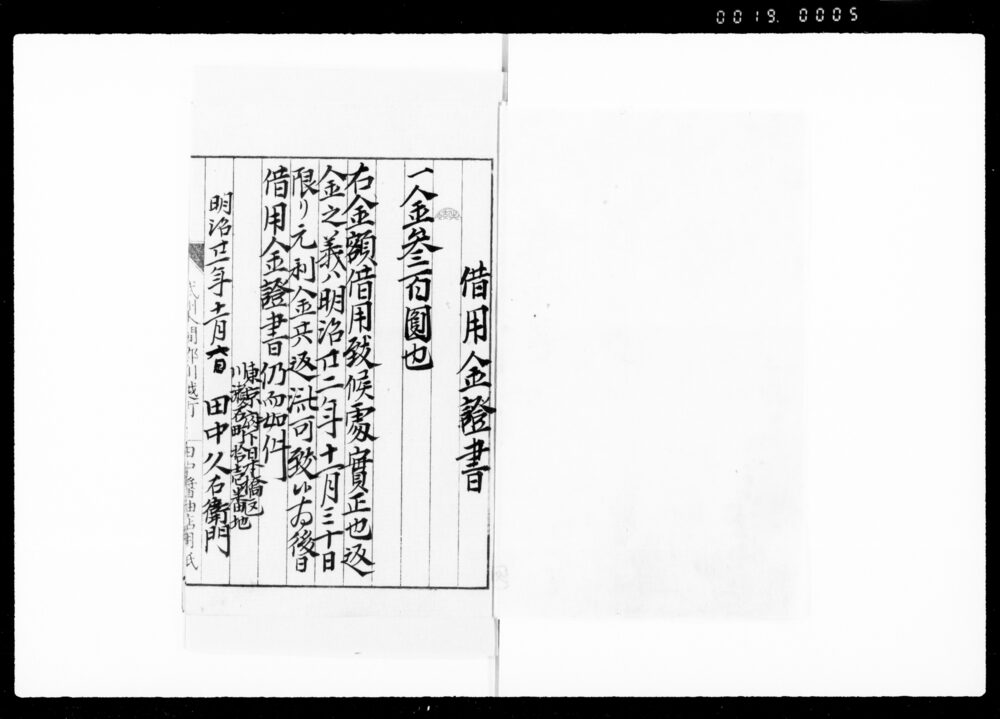 0019. 0005
借用金證書
一金叄百圓也
右金額借用致候處實正也返
金之義ハ明治廿二年十一月三十日
限リ元利金共返濟可致候為後日
借用金證書仍而如件
東京府下日本橋区
明治廿一年十一月六日 田中久右衛門